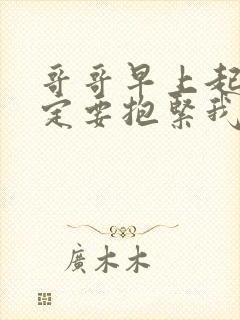 哥哥早上起
定要抱緊我
廣木木